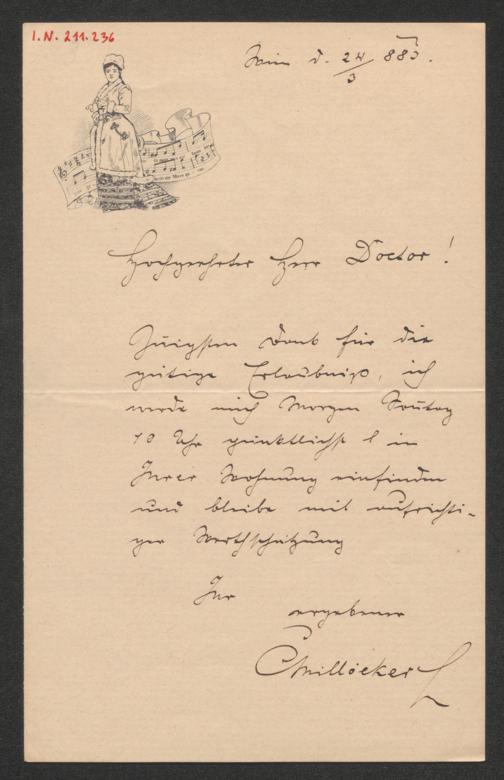 I.N. 211.236
Wien d. 24/3 883.
Hochgeehrter Herr Doctor!
Innigsten Dank für die
gütige Erlaubniß, ich
werde mich Morgen Sonntag
10 Uhr pünktlichst in
Ihrer Wohnung einfinden
und bleibe mit aufrichti-
ger Werthschätzung
Ihr
ergebener
CMillöcker